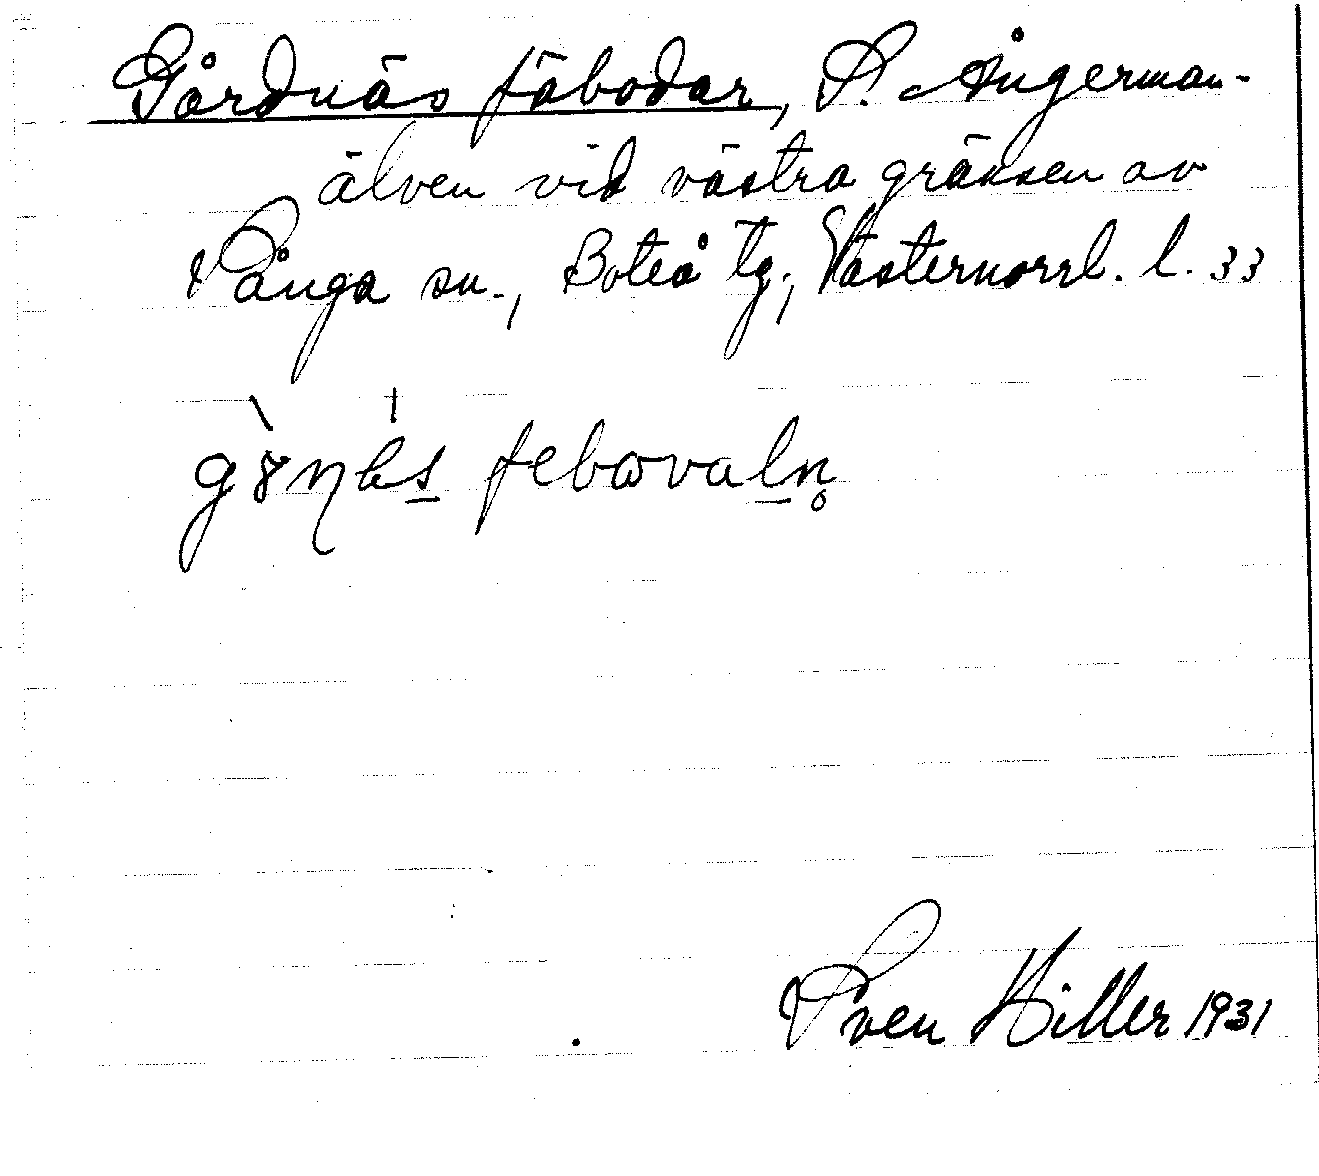 Gårdnäs fäbodar, S. Ångerman-
älven vid västra gränsen av
Sånga sn., Boteå tg., Västernorrl. l. 33
febovaln
Sven Hiller 1931